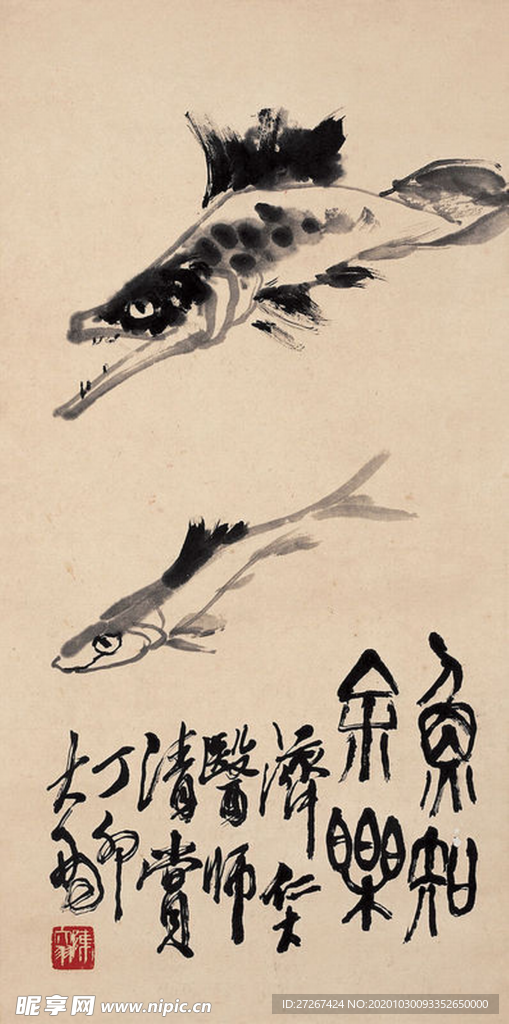 魚知
余樂
濟仁大
醫師
清賞
丁卯
大羽
陳大羽
昵享网 www.nipic.cn
ID:27267424 NO:20201030093352650000